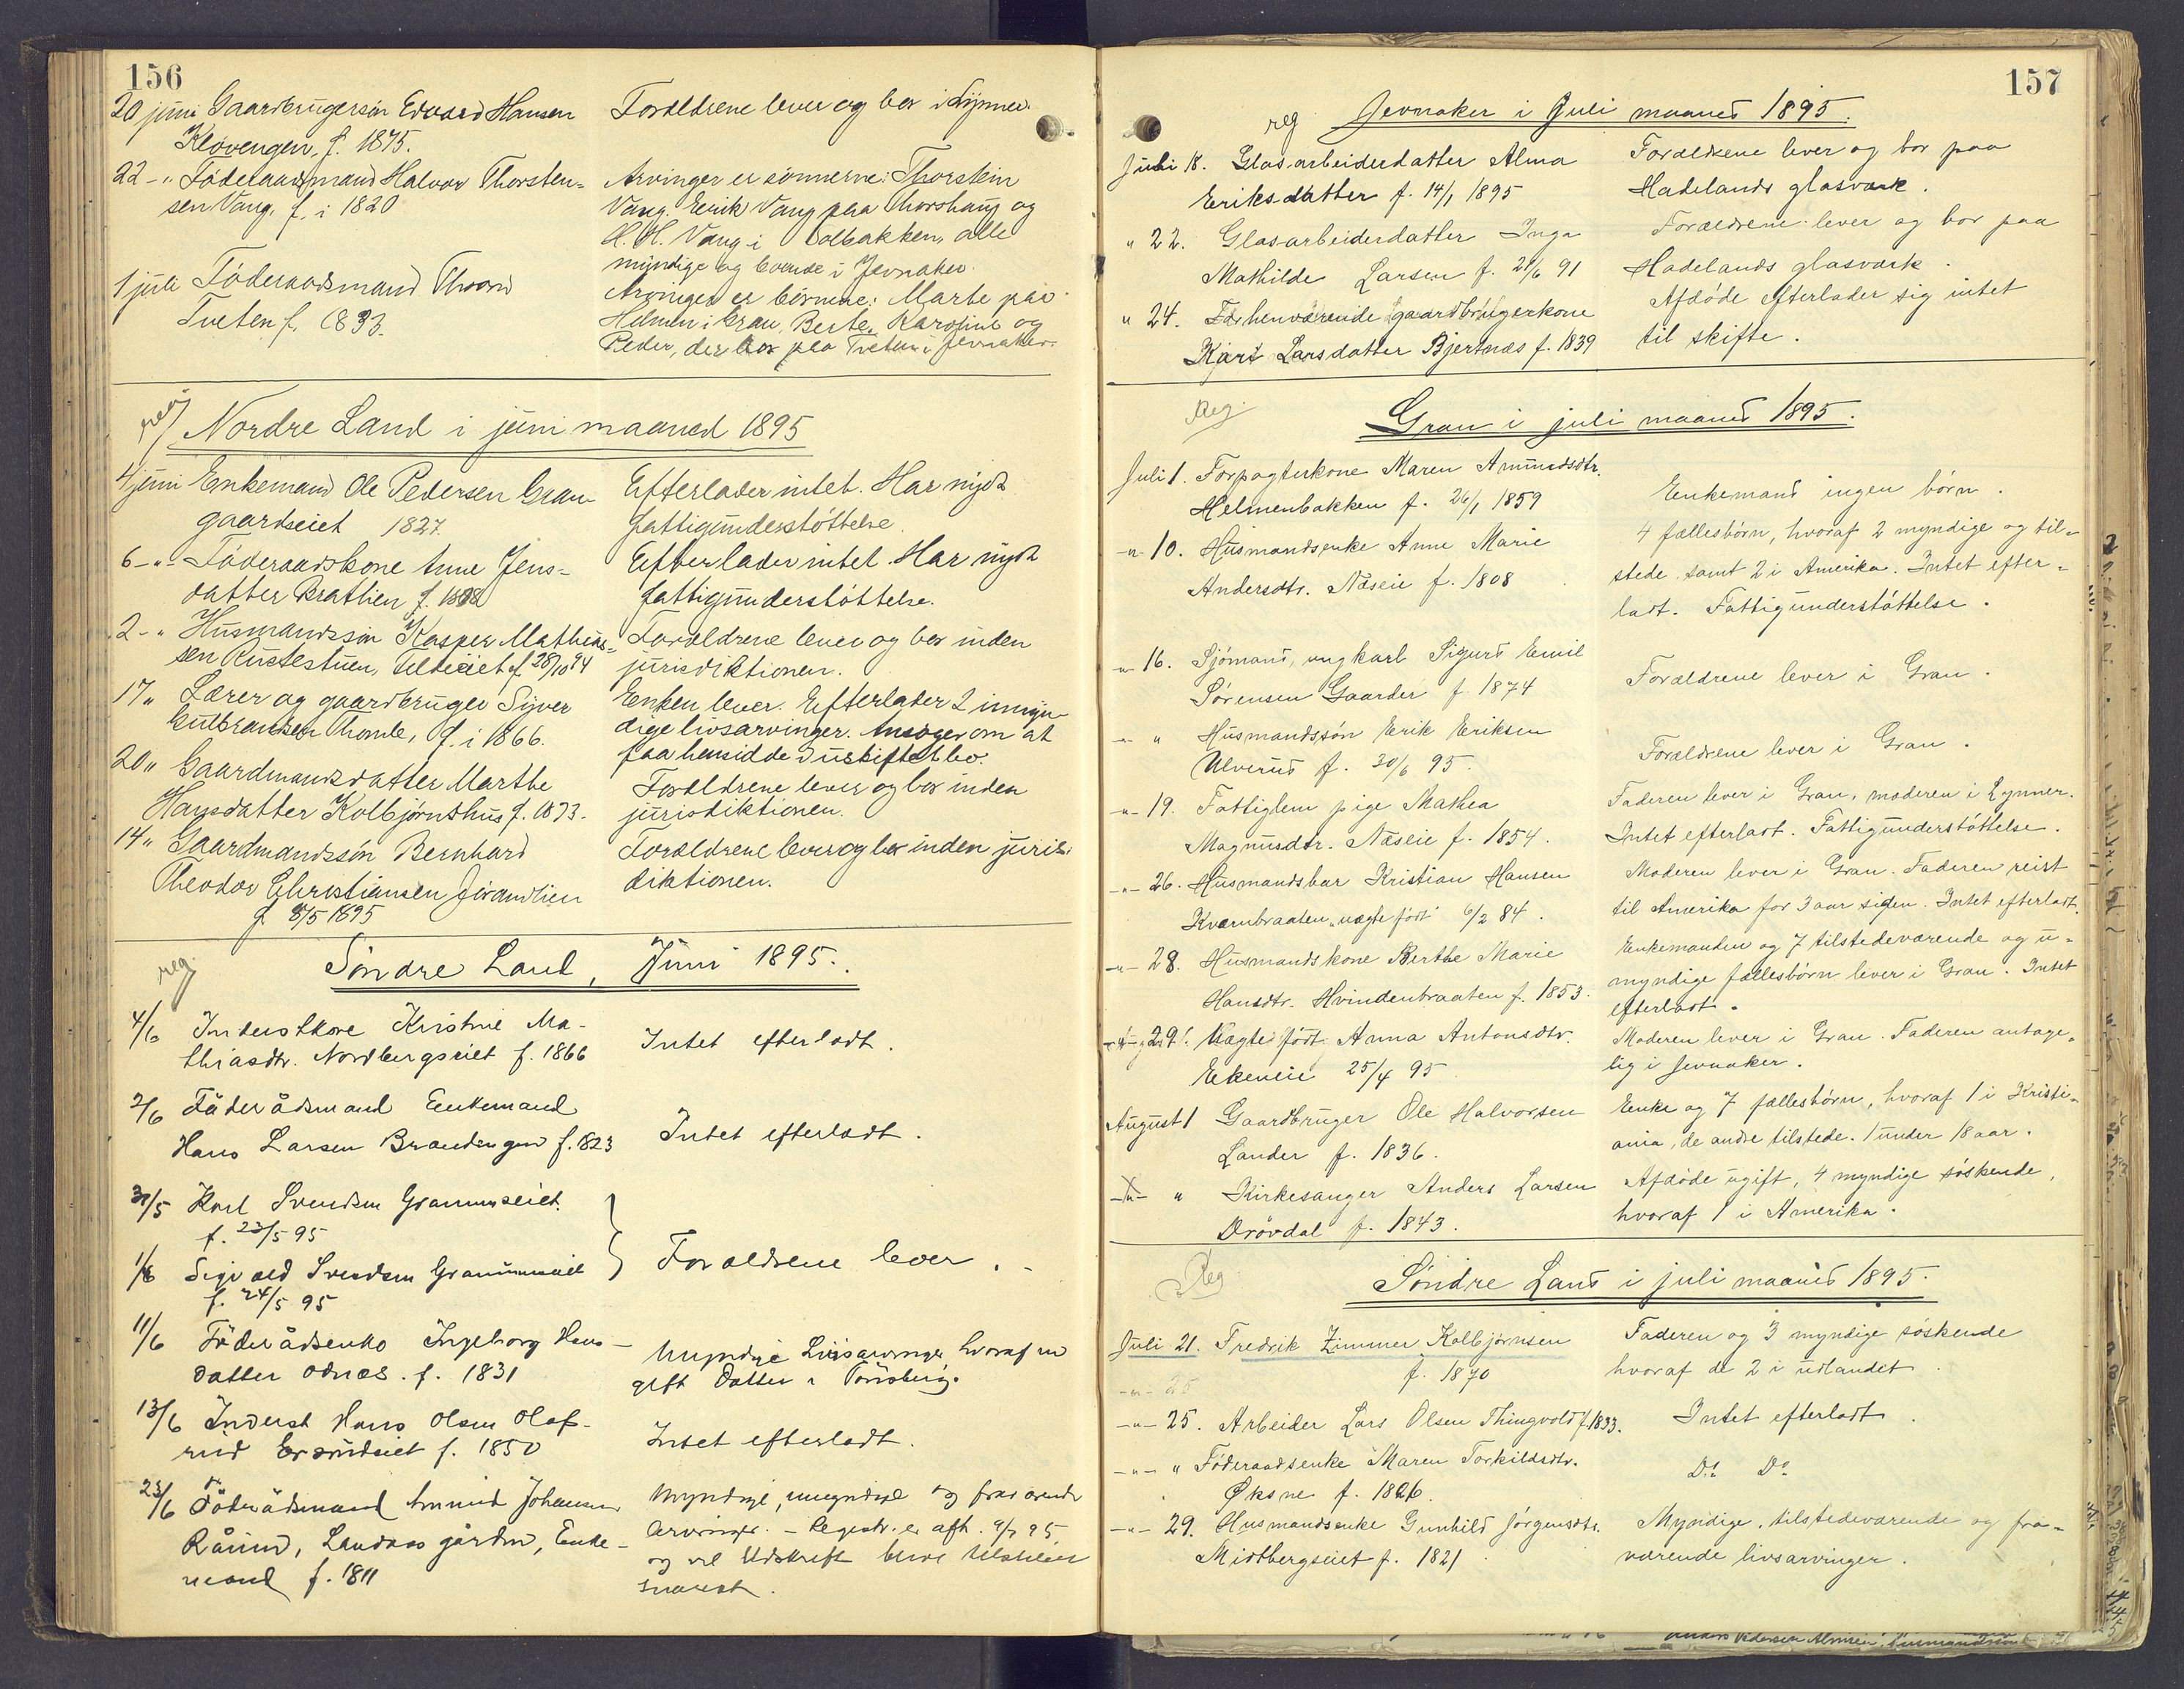 156
20 juni Gaardbrugersøn Edvard Hansen
Klovengen, f. 1875.
Forældrene lever og bor i Lynner.
22 -"- Føderaadsmand Halvor Thorsten-
sen Vang, f. i 1820
Arvinger er sønnerne: Thorstein
Vang. Eerik Vang paa Thorshaug og
H. H. Vang i Solbakken, alle
myndige og boende i Jevnaker.
1 juli Føderaadsmand Thord
Tveten f. 1833.
Arvinger er børnene: Marte paa
Helmen i Gran, Berte, Karoline og
Peder, der bor paa Tveten i Jevnaker.
reg
Nordre Land i juni maaned 1895
4 juni Enkemand Ole Pedersen Gran
gaardseiet 1827.
Efterlader intet. Har nydt
fattigunderstøttelse.
6 -"- Føderaadskone Anne Jens-
datter Brathien f. 1808
Efterlader intet. Har nydt
fattigunderstøttelse.
2 - " Husmandssøn Kasper Mathias-
sen Rustestuen, f. 28/10 94
Forældrene lever og bor inden
jurisdiktionen.
17 " Lærer og gaardbruger Siver
Gulbrandsen Thomle, f. i 1866.
Enken lever. Efterlader 2 umyn-
dige livsarvinger. Ansøger om at
faa hensidde i uskiftet bo.
20 " Gaardmandsdatter Marthe
Hansdatter Kolbjørnshus f. 1873.
Forældrene lever og bor inden
jurisdiktionen.
14 " Gaardmandssøn Bernhard
Theodor Christiansen Jørandlien
f. 8/5 1895
Forældrene lever og bor inden juris-
diktionen.
reg.
Søndre Land, Juni 1895.
4/6 Inderstkone Kristine Ma-
thiasdtr. Nordbergseiet f. 1866
Intet efterladt.
2/6 Føderådsmand Enkemand
Hans Larsen Brandengen f. 1823
Intet efterladt.
31/5 Karl Svendsen Grammseiet
f. 23/5 95
1/6 Sigvald Svendsen Grammseiet
f. 24/5 95
Forældrene lever.
11/6 Føderådsenke Ingeborg Hans-
datter Odnæs. f. 1831
Myndige Livsarvinger hvoraf en
gift Datter i Tønsberg.
13/6 Inderst Hans Olsen Olaf-
rud f. 1850
Intet efterladt.
23/6 Føderådsmand Amund Johansen
Råum, Landaas gården, Enke-
mand f. 1811
Myndige, umyndige og fraværende
Arvinger. - Registr. er afh. 9/7 95
og vil Udskrift blive tilstillet
snarest.
157
reg Jevnaker i Juli maaned 1895.
Juli 18. Glasarbeiderdatter Alma
Eriksdatter f. 14/1 1895
Forældrene lever og bor paa
Hadelands glasværk.
" 22. Glasarbeiderdatter Inga
Mathilde Larsen f. 21/6 91
Forældrene lever og bor paa
Hadelands glasværk.
" 24. Forhenværende gaardbrugerkone
Kari Larsdatter Bjertnæs f. 1839
Afdøde efterlader sig intet
til skifte.
Reg.
Gran i juli maaned 1895.
Juli 1. Forpagterkone Maren Amundsdtr.
Helmenbakken f. 26/1 1859
Enkemand ingen børn.
-"- 10. Husmandsenke Anne Marie
Andersdtr. Næseie f. 1808
4 fællesbørn, hvoraf 2 myndige og til-
stede samt 2 i Amerika. Intet efter-
ladt. Fattigunderstøttelse.
-"- 16. Sjømand, ungkarl Sigurd Emil
Sørensen Gaarder f. 1874
Forældrene lever i Gran.
-"- " Husmandssøn Erik Eriksen
Ulverud f. 30/6 95.
Forældrene lever i Gran.
-"- 19. Fattiglem pige Mathea
Magnusdtr. Næseie f. 1854.
Faderen lever i Gran, moderen i Lynner.
Intet efterladt. Fattigunderstøttelse.
-"- 26. Husmandsbar Kristian Hansen
Kværnbraaten "uægte født" 6/2 84.
Moderen lever i Gran. Faderen reist
til Amerika for 3 aar siden. Intet efterladt.
-"- 28. Husmandskone Berthe Marie
Hansdtr. Hvindenbraaten f. 1853.
Enkemanden og 7 tilstedeværende og u-
myndige fællesbørn lever i Gran. Intet
efterladt.
-"- 29. Uægte født Anna Antonsdtr.
Ekeneie 25/4 95
Moderen lever i Gran. Faderen antage-
lig i Jevnaker.
August 1 Gaardbruger Ole Halvorsen
Lander f. 1836.
Enke og 7 fællesbørn, hvoraf 1 i Kristi-
ania, de andre tilstede. 1 under 18 aar.
-"- " Kirkesanger Anders Larsen
Drøvdal f. 1843.
Afdøde ugift, 4 myndige søskende,
hvoraf 1 i Amerika.
Reg
Søndre Land i juli maaned 1895.
Juli 21. Fredrik Zimmer Kolbjørnsen
f. 1870
Faderen og 3 myndige søskende
hvoraf de 2 i udlandet.
-"- 25
-"- 25. Arbeider Lars Olsen Thingvold f. 1833.
Intet efterladt.
-"- " Føderaadsenke Maren Torkildsdtr.
Øksne f. 1826.
Do Do
-"- 29. Husmandsenke Gunhild Jørgensdtr.
Midtbergseiet f. 1821.
Myndige, tilstedeværende og fra-
værende livsarvinger.